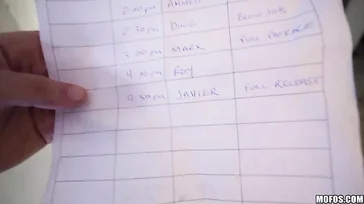 2:00pm AHMED BLOWJOB
2:30pm DOUG FULL PACKAGE
3:00pm MARK
4:00pm ROY
4:30pm JAVIER FULL RELEASE
MOFOS.COM